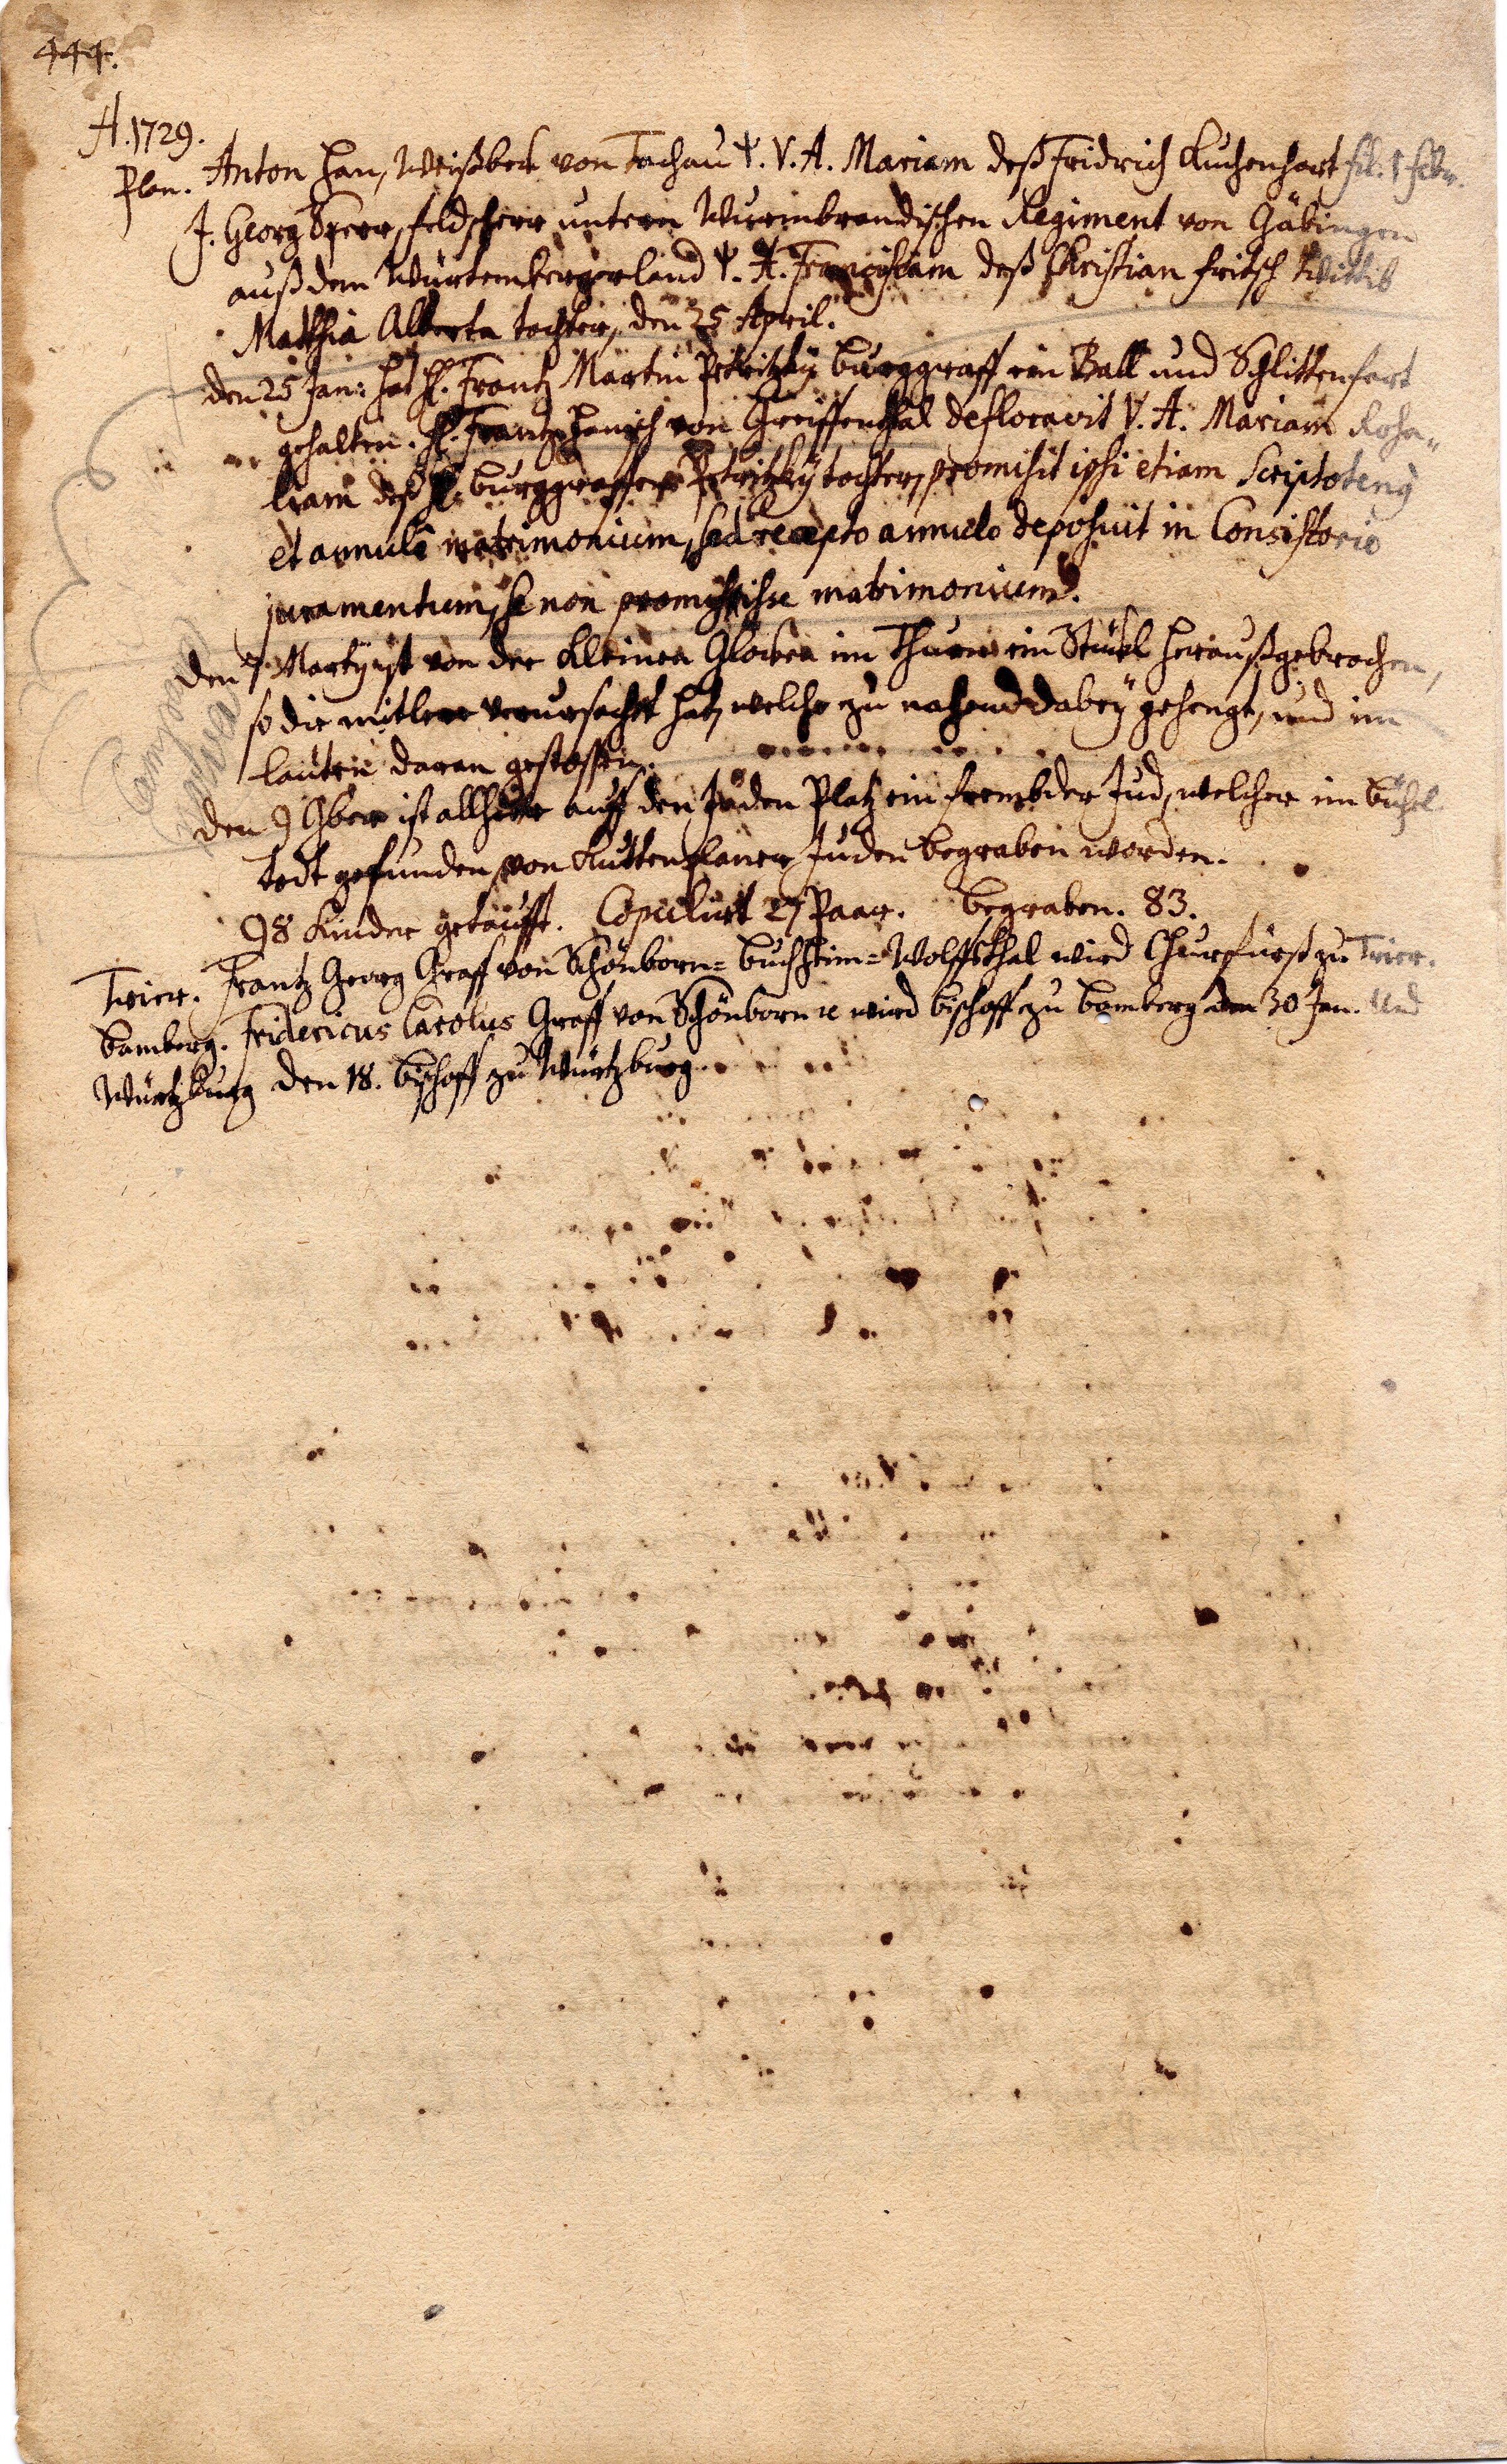 444.
A. 1729.
Plan. Anton Han, Weißbeck von Tachau Ψ. V. A. Mariam deß Fridrich Kuchenhart fil. 1 febr.
J. Georg Sperr, feldscherr unterm Wurmbrandischen Regiment von Gäbingen
auß dem Würtembergerland Ψ. A. Franciscam deß Christian fritsch Wittib
Matthia Alberta tochter, den 25 April.
den 25 Jan: hat H. Frantz Martin Petritzky Burggraff ein Ball und Schlittenfart
gehalten. H. Frantz Hanisch von Greiffenthal defloravit V. A. Mariam Rosa=
liam deß H. Burggraffen Petritzky tochter, promisit ipsi etiam Scriptotenus
et annulo matrimonium, sed recepto annulo deposuit in Consistorio
juramentum, se non promisisse matrimonium.
den 7 Martÿ ist von der Kleinen Glocken im Thurn ein Stückl heraußgebrochen,
so die mitlere verursacht hat, welche zu nahend dabeÿ gehengt, und im
lauten daran gestossen.
den 9 9ber ist allhier auff den Juden Platz ein frembder Jud, welcher im büchel
todt gefunden, von Kuttenplaner Juden begraben worden.
98 Kinder getaufft. Copulirt 27 Paar. begraben. 83.
Trier. Frantz Georg Graff von Schönborn= Buchheim= Wolffsthal wird Churfürst zu Trier.
Bamberg. Fridericus Carolus Graff von Schönborn ꝛc wird Bischoff zu Bamberg den 30 Jan. Und
Würtzburg den 18. Bischoff zu Würtzburg